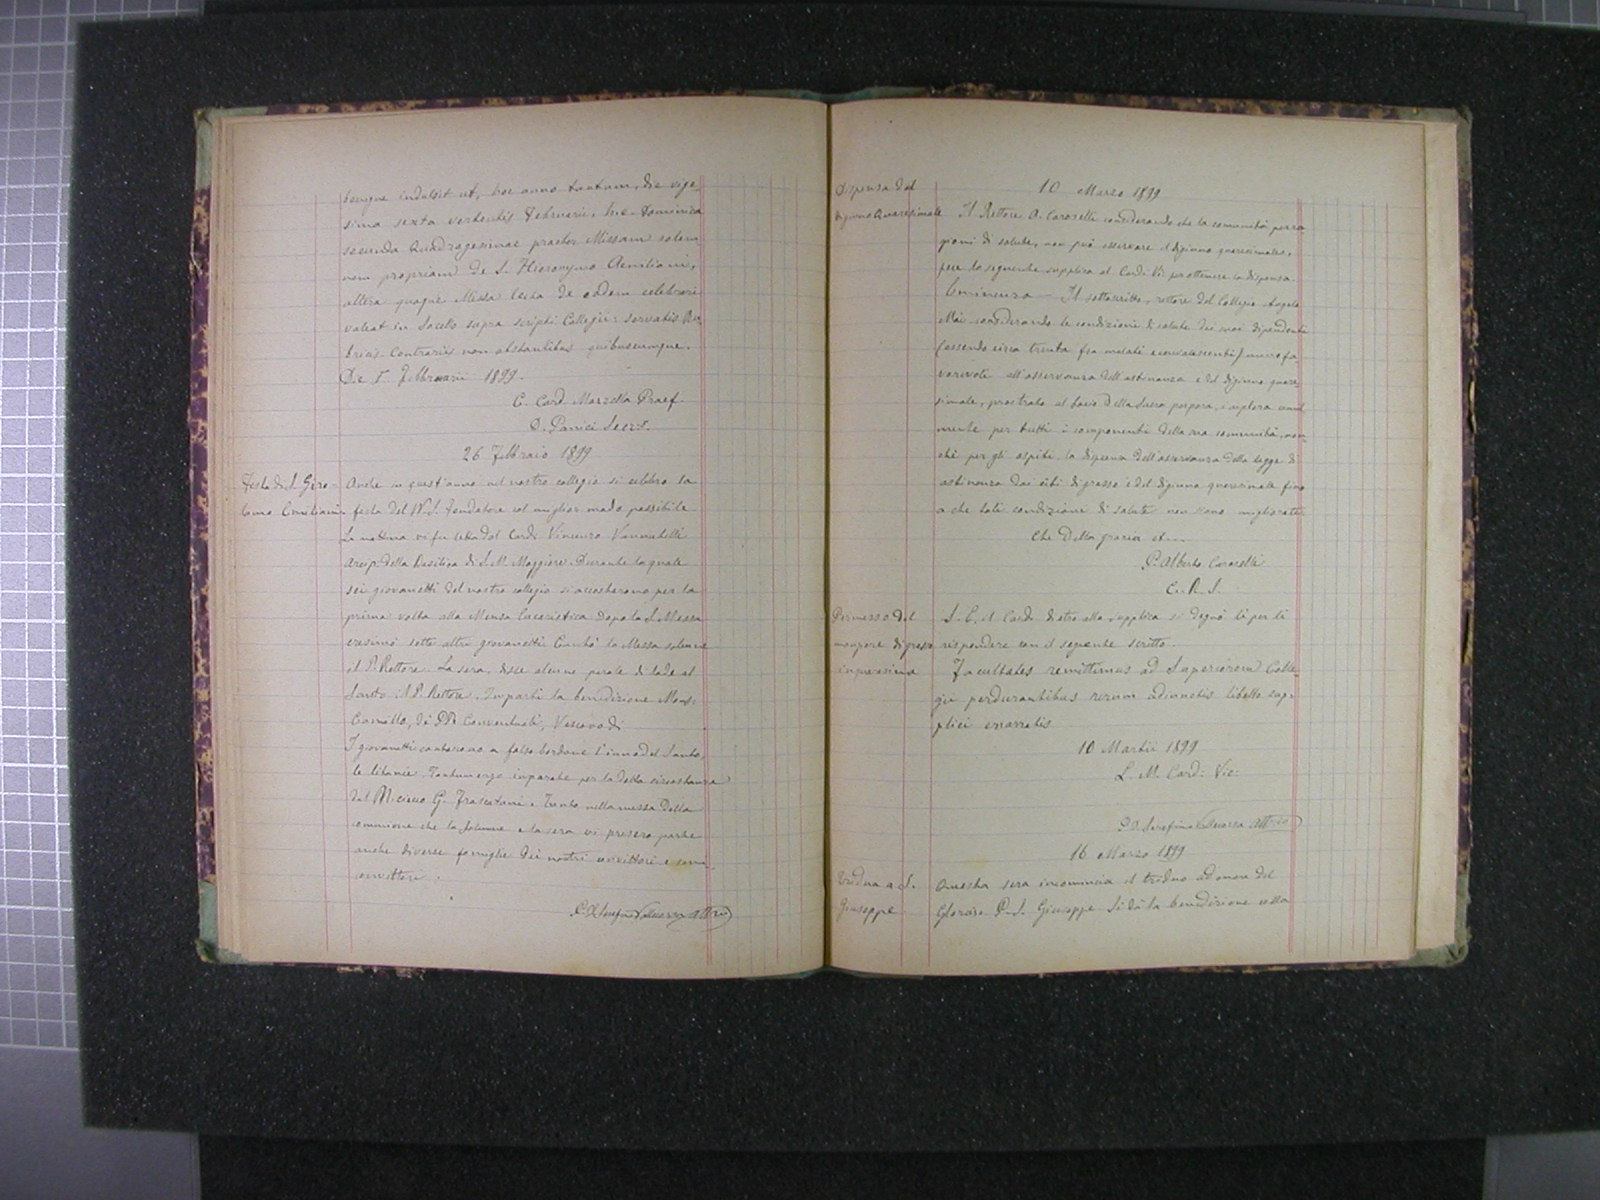 benigne indulsit ut, hoc anno tantum, die vige-
sima sexta vertentis Februarii, hac Dominica
secunda Quadragesimae praeter Missam solem
nem propriam de S. Hieronymo Aemiliani,
altera quoque Missa lecta de eodem celebrari
valeat in Sacello supra scripti Collegii: servatis Ru-
bricis. Contrariis non obstantibus quibuscumque.
Die Februarii 1899.
C. Card. Mazzella Praef.
D. Panici Secr.
26 Febbraio 1899
Festa di S. Giro-
lamo Emiliani
Anche in quest'anno nel nostro collegio si celebra la
festa del N. S. Fondatore col miglior modo possibile
La mattina vi fu letta dal Card. Vincenzo Vannutelli
arcip. della Basilica di S. M. Maggiore. Durante la quale
sei giovanetti del nostro collegio si accostarono per la
prima volta alla Mensa Eucaristica. Dopo la S. Messa
cresimò sette altri giovanetti. Cantò la Messa solenne
il P. Rettore. La sera, disse alcune parole di lode al
Santo il P. Rettore. Impartì la benedizione Mons.
dei PP. Conventuali, Vescovo di
I giovanetti cantarono a falso bordone l'inno del Santo,
le litanie, Tantumergo imparate per la detta circostanza
dal M. cieco G. Trento nella messa della
comunione che la solenne e la sera vi presero parte
anche diverse famiglie dei nostri convittori e semi
convittori.
P. D. Serafino
Dispensa dal
digiuno Quaresimale
10 Marzo 1899
Il Rettore A. Caroselli considerando che la comunità per ra
gioni di salute, non può osservare il digiuno quaresimale,
fece la seguente supplica al Card. Vi. per ottenere la dispensa.
Eminenza — Il sottoscritto, rettore del Collegio Angelo
Mai considerando le condizioni di salute dei suoi dipendenti
(essendo circa trenta fra malati e convalescenti)
all'osservanza dell'astinenza e del digiuno quare
simale, prostrato al bacio della Sacra porpora, implora umil
mente per tutti i componenti della sua comunità, non
chè per gli ospiti la dispensa dell'osservanza della legge di
astinenza dai cibi di grasso e del digiuno quaresimale fino
a che tali condizioni di salute non siano migliorate.
Che della grazia et...
P. Alberto Caroselli
C. R. S.
Permesso del
mangiare di grasso
in quaresima
S. E. il Card. dietro alla supplica si degnò lì per lì
rispondere con il seguente scritto.
Facultates remittimus ad Superiorem Colle
gii perdurantibus rerum adiunctis libello sup-
plici enarratis
10 Martii 1899
L. M. Card. Vic.
P. D. Serafino
16 Marzo 1899
Triduo a S.
Giuseppe
Questa sera incomincia il triduo ad onore del
Glorioso P. S. Giuseppe. Si dà la benedizione colla